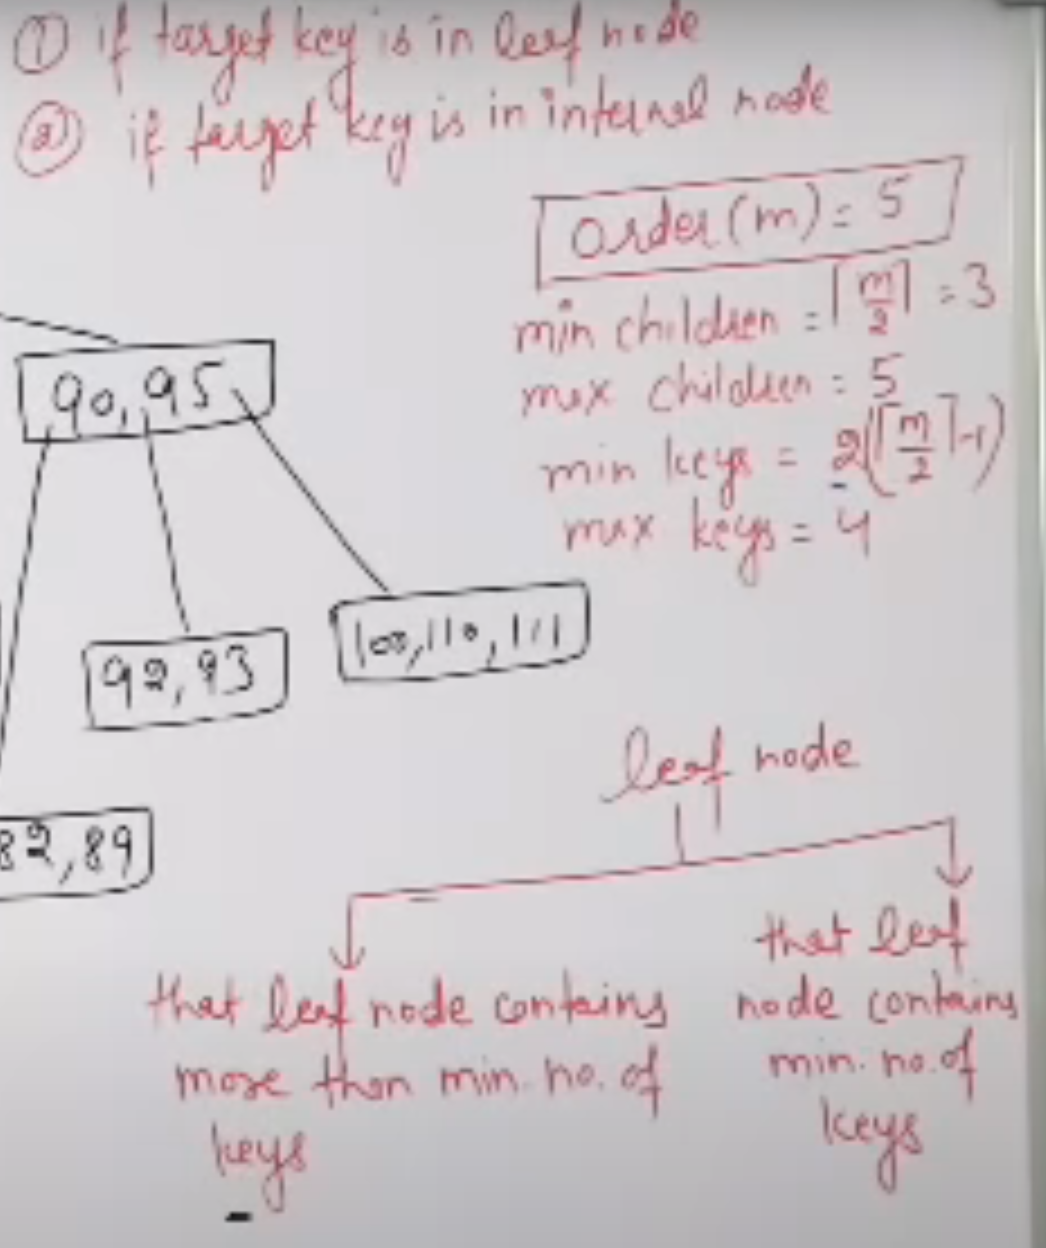 ① if target key is in leaf node
② if target key is in internal node
Order (m) = 5
min children = ⌈m/2⌉ = 3
max children = 5
min keys = 2(⌈m/2⌉-1)
max keys = 4
90, 95
92, 93
100, 110, 111
82, 89
leaf node
that leaf node contains
more than min. no. of
keys
that leaf
node contains
min. no. of
keys